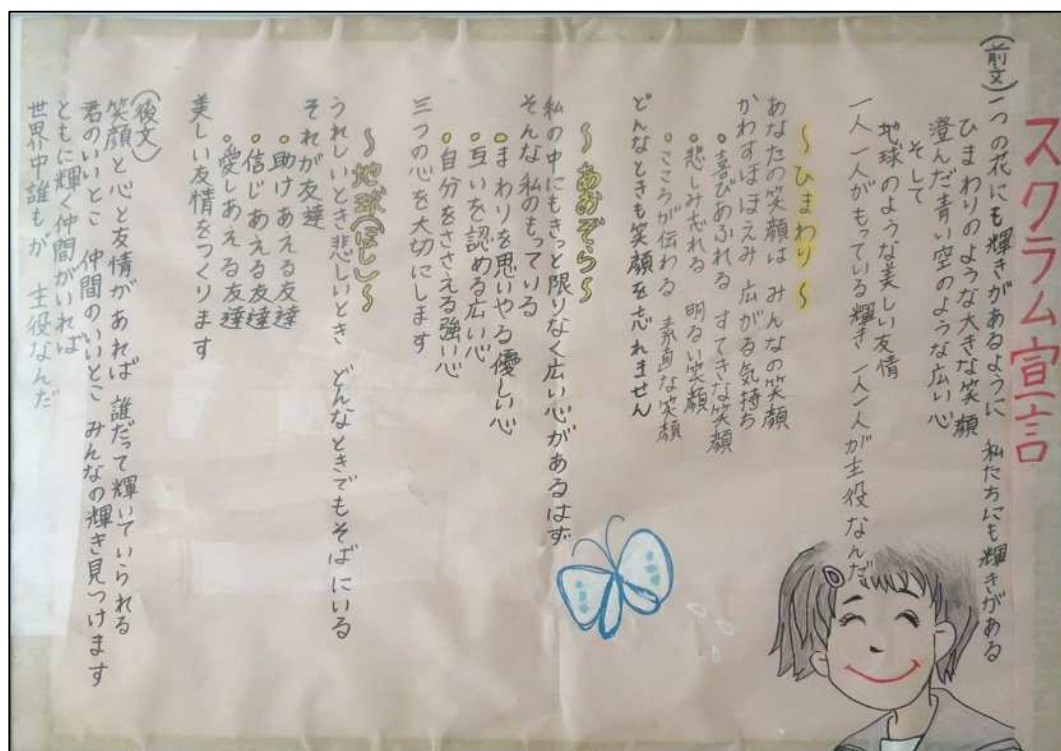 スクラム宣言
(前文)一つの花にも輝きがあるように 私たちにも輝きがある
ひまわりのような大きな笑顔
澄んだ青い空のような広い心
そして
地球のような美しい友情
一人一人がもっている輝き 一人一人が主役なんだ
～ひまわり～
あなたの笑顔は みんなの笑顔
かわすほほえみ 広がる気持ち
・喜びあふれる すてきな笑顔
・悲しみ忘れる 明るい笑顔
・こころが伝わる 素直な笑顔
どんなときも笑顔を忘れません
～あおぞら～
私の中にもきっと限りなく広い心があるはず
そんな私のもっている
・まわりを思いやる優しい心
・互いを認める広い心
・自分をささえる強い心
三つの心を大切にします
～地球(ほし)～
うれしいとき悲しいとき どんなときでもそばにいる
それが友達
・助けあえる友達
・信じあえる友達
・愛しあえる友達
美しい友情をつくります
(後文)
笑顔と心と友情があれば 誰だって輝いていられる
君のいいとこ 仲間のいいとこ みんなの輝き見つけます
ともに輝く仲間がいれば
世界中誰もが 主役なんだ